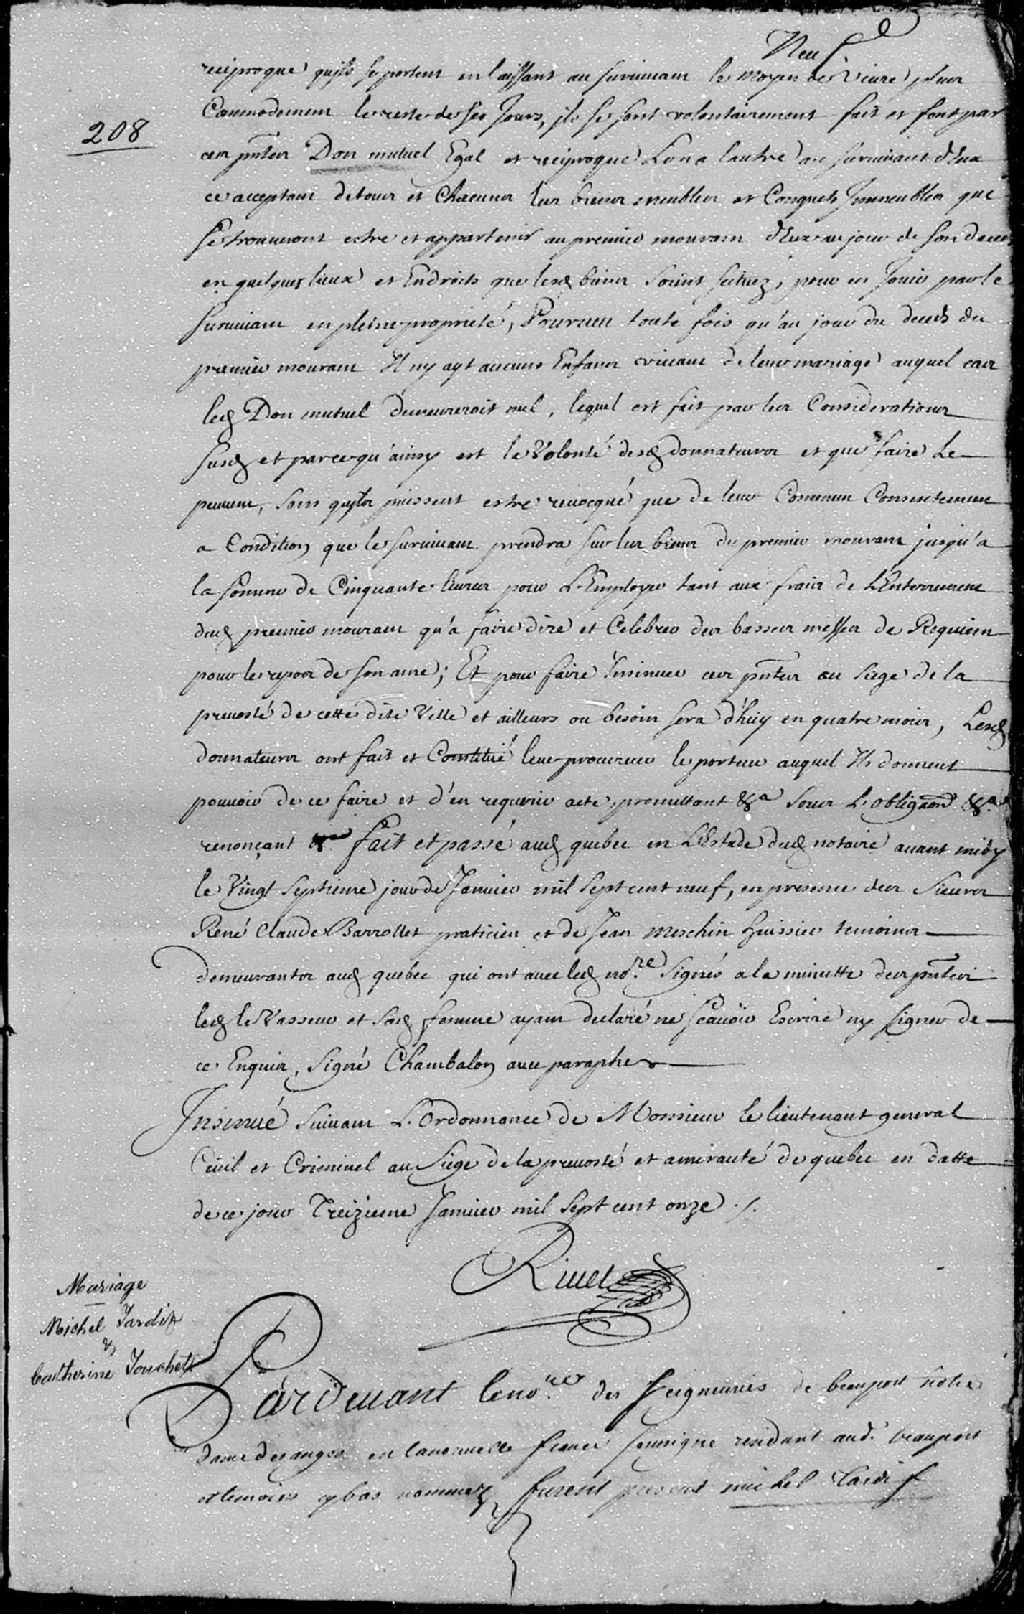 Neuf
reciproque qu'ils se portent en laissant au survivant le moyen de vivre plus
208
Commodement le reste de ses Jours, ils se sont volontairement fait et font par
ces pntes Don mutuel Egal et reciproque Lun a lautre au survivant d'Eux
ce acceptant de tous et Chacuns leurs biens meubles et Conquets Immeubles que
se trouveront estre et appartenir au premier mourant d'Eux au jour de son deceds
en quelques lieux et Endroits que lesd biens soient scituez, pour en Jouir par le
survivant en pleine proprieté, Pourveu toute fois qu'au jour du deceds du
premier mourant Il ny ayt aucuns Enfans vivans de leur mariage auquel cas
led Don mutuel demeureroit nul, lequel est fait par les Considerations
susd et parce qu'ainsy est la Volonté desd donnateurs et que faire le
peuvent, sans qu'il puissent estre revocqué que de leur Commun Consentement
a Condition que le survivant prendra sur les biens du premier mourant jusqu'a
la somme de Cinquante livres pour L'Employer tant aux frais de L'Enterrement
dud premier mourant qu'a faire dire et Celebrer des basses messes de Requiem
pour le repos de son ame; Et pour faire Insinuer ces pntes au Siege de la
prevosté de cette dite Ville et ailleurs ou besoin sera d'huy en quatre mois, Lesd
donnateurs ont fait et Constitué leur procureur le porteur auquel Ils donnent
pouvoir de ce faire et d'en requerir acte, promettant &a sous L'obligaon &a
renonçant &a fait et passé aud quebec en L'Estude dud notaire avant midy
le Vingt Septieme jour de Janvier mil sept cent neuf, en presence des Sieurs
René Claude Barrollet praticien et de Jean meschin huissier temoins
demeurants aud quebec qui ont avec led nore signés a la minutte des pntes
led le Vasseur et sad femme ayant declaré ne sçavoir Escrire ny signer de
ce Enquis, Signé Chambalon avec paraphe
Insinué suivant L'Ordonnance de Monsieur le lieutenant general
Civil et Criminel au Siege de la prevosté et amirauté de quebec en datte
de ce jour Treizieme Janvier mil sept cent onze ./.
Rivet
Mariage
Michel Tardif
&
Catherine Touchet
Pardevant le nore des seigneuries de beauport notre
dame des anges en la nouvelle france soussigne residant aud. beauport
et temoins cy bas nommez, furent presents michel Tardif